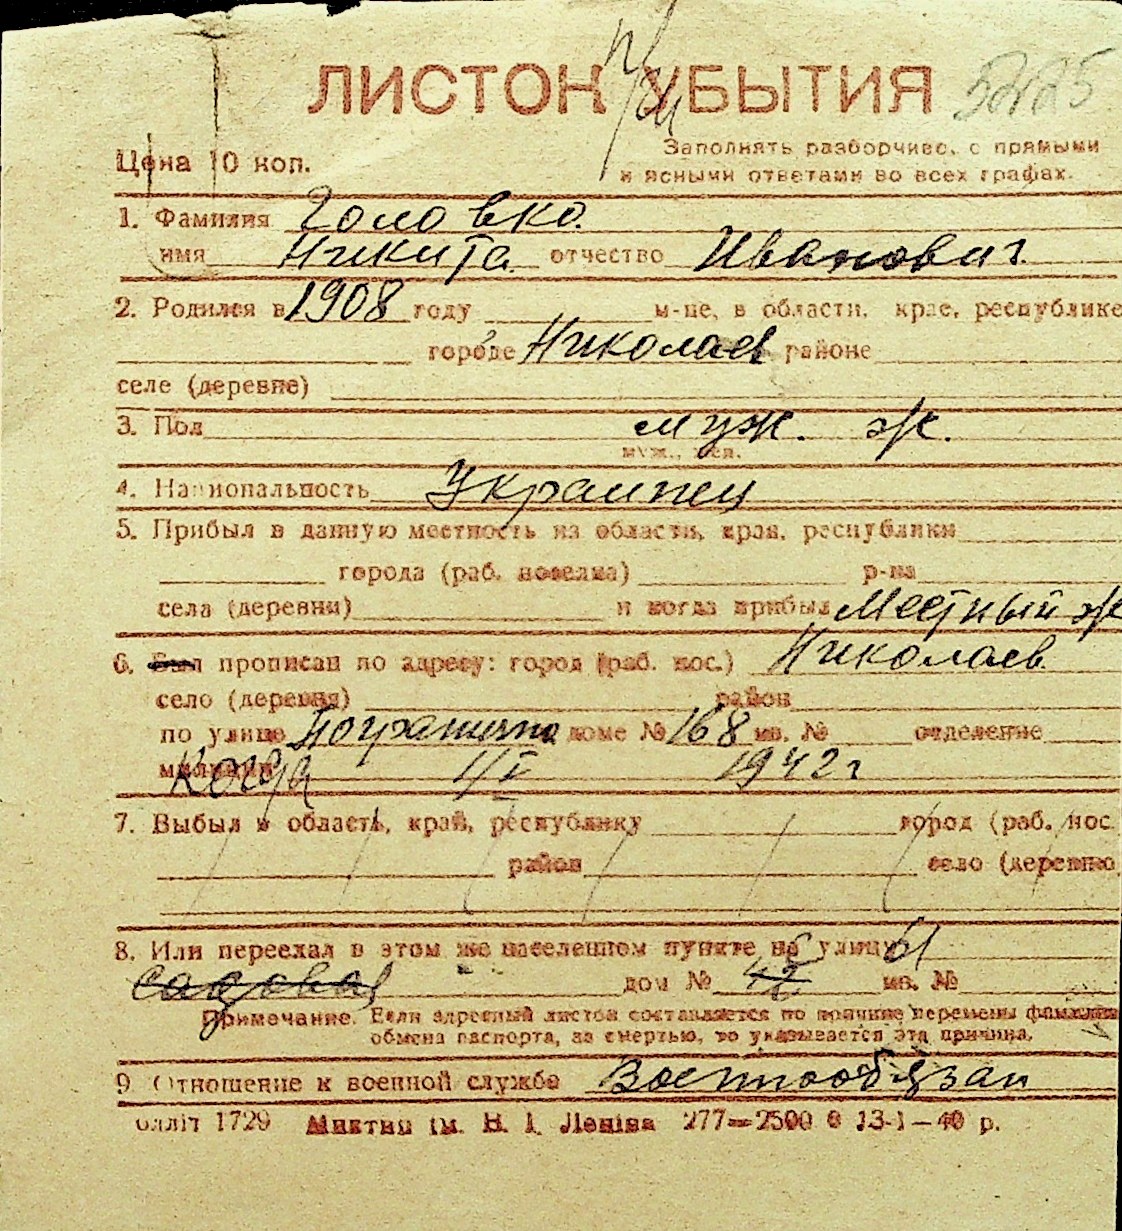 ЛИСТОК УБЫТИЯ 5225
Цена 10 коп.
Заполнять разборчиво, с прямыми
и ясными ответами во всех графах.
1. Фамилия Головко
имя Никита отчество Иванович
2. Родился в 1908 году м-це, в области, крае, республике
городе Николаев районе
селе (деревне)
3. Пол муж. ж.
муж., жен.
4. Национальность Украинец
5. Прибыл в данную местность из области, края, республики
города (раб. поселка) р-на
села (деревни) и когда прибыл Местный ж
6. Был прописан по адресу: город (раб. пос.) Николаев
село (деревня) район
по улице Погранична доме № 168 кв. № отделение
милиции Когда 1/I 1942 г
7. Выбыл в область, край, республику город (раб. пос.
район село (деревню
8. Или переехал в этом же населенном пункте на улицу
Садовая дом № 42 кв. №
Примечание. Если адресный листок составляется по причине перемены фамилии
обмена паспорта, за смертью, то указывается эта причина.
9. Отношение к военной службе Военнообязан
блліт 1729 Миктип ім. В. І. Леніна 277—2500 13-1—40 р.